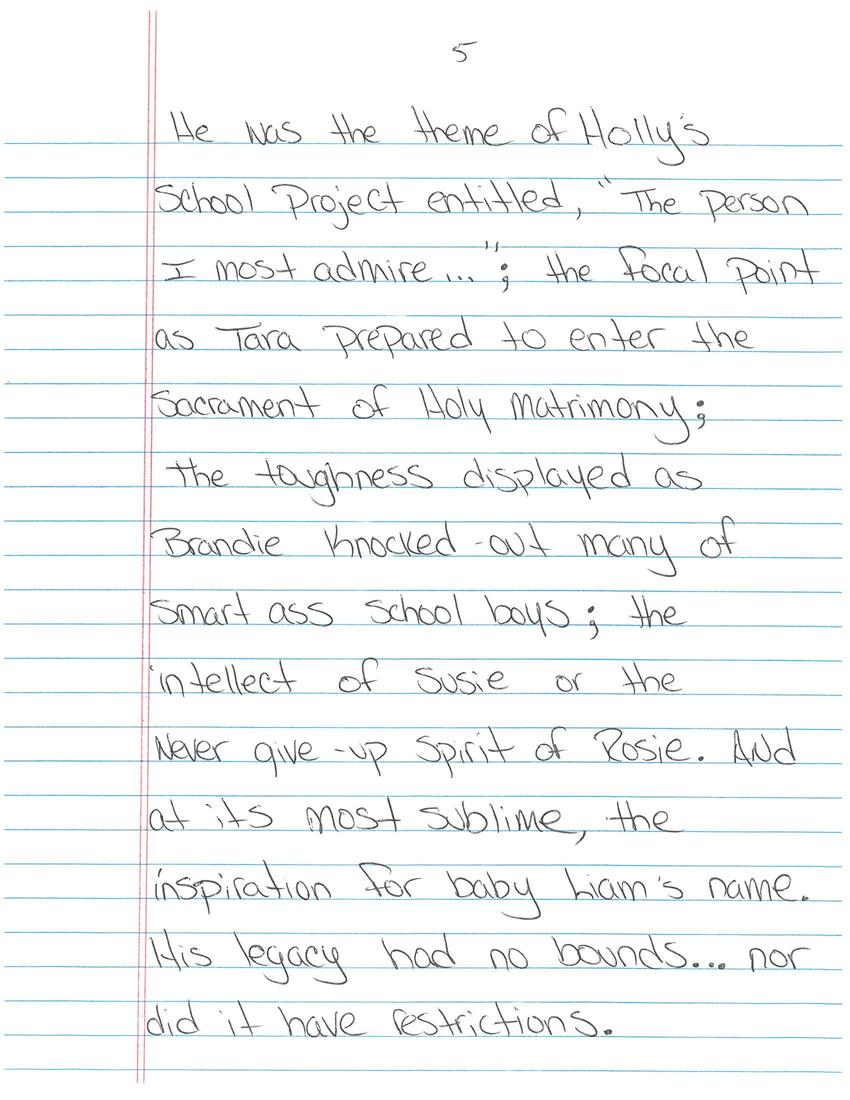 5
He was the theme of Holly's
School Project entitled, "The person
I most admire..."; the focal point
as Tara prepared to enter the
Sacrament of Holy Matrimony;
the toughness displayed as
Brandie Knocked-out many of
smart ass school boys; the
intellect of Susie or the
Never give-up Spirit of Rosie. And
at its most sublime, the
inspiration for baby Liam's name.
His legacy had no bounds... nor
did it have restrictions.